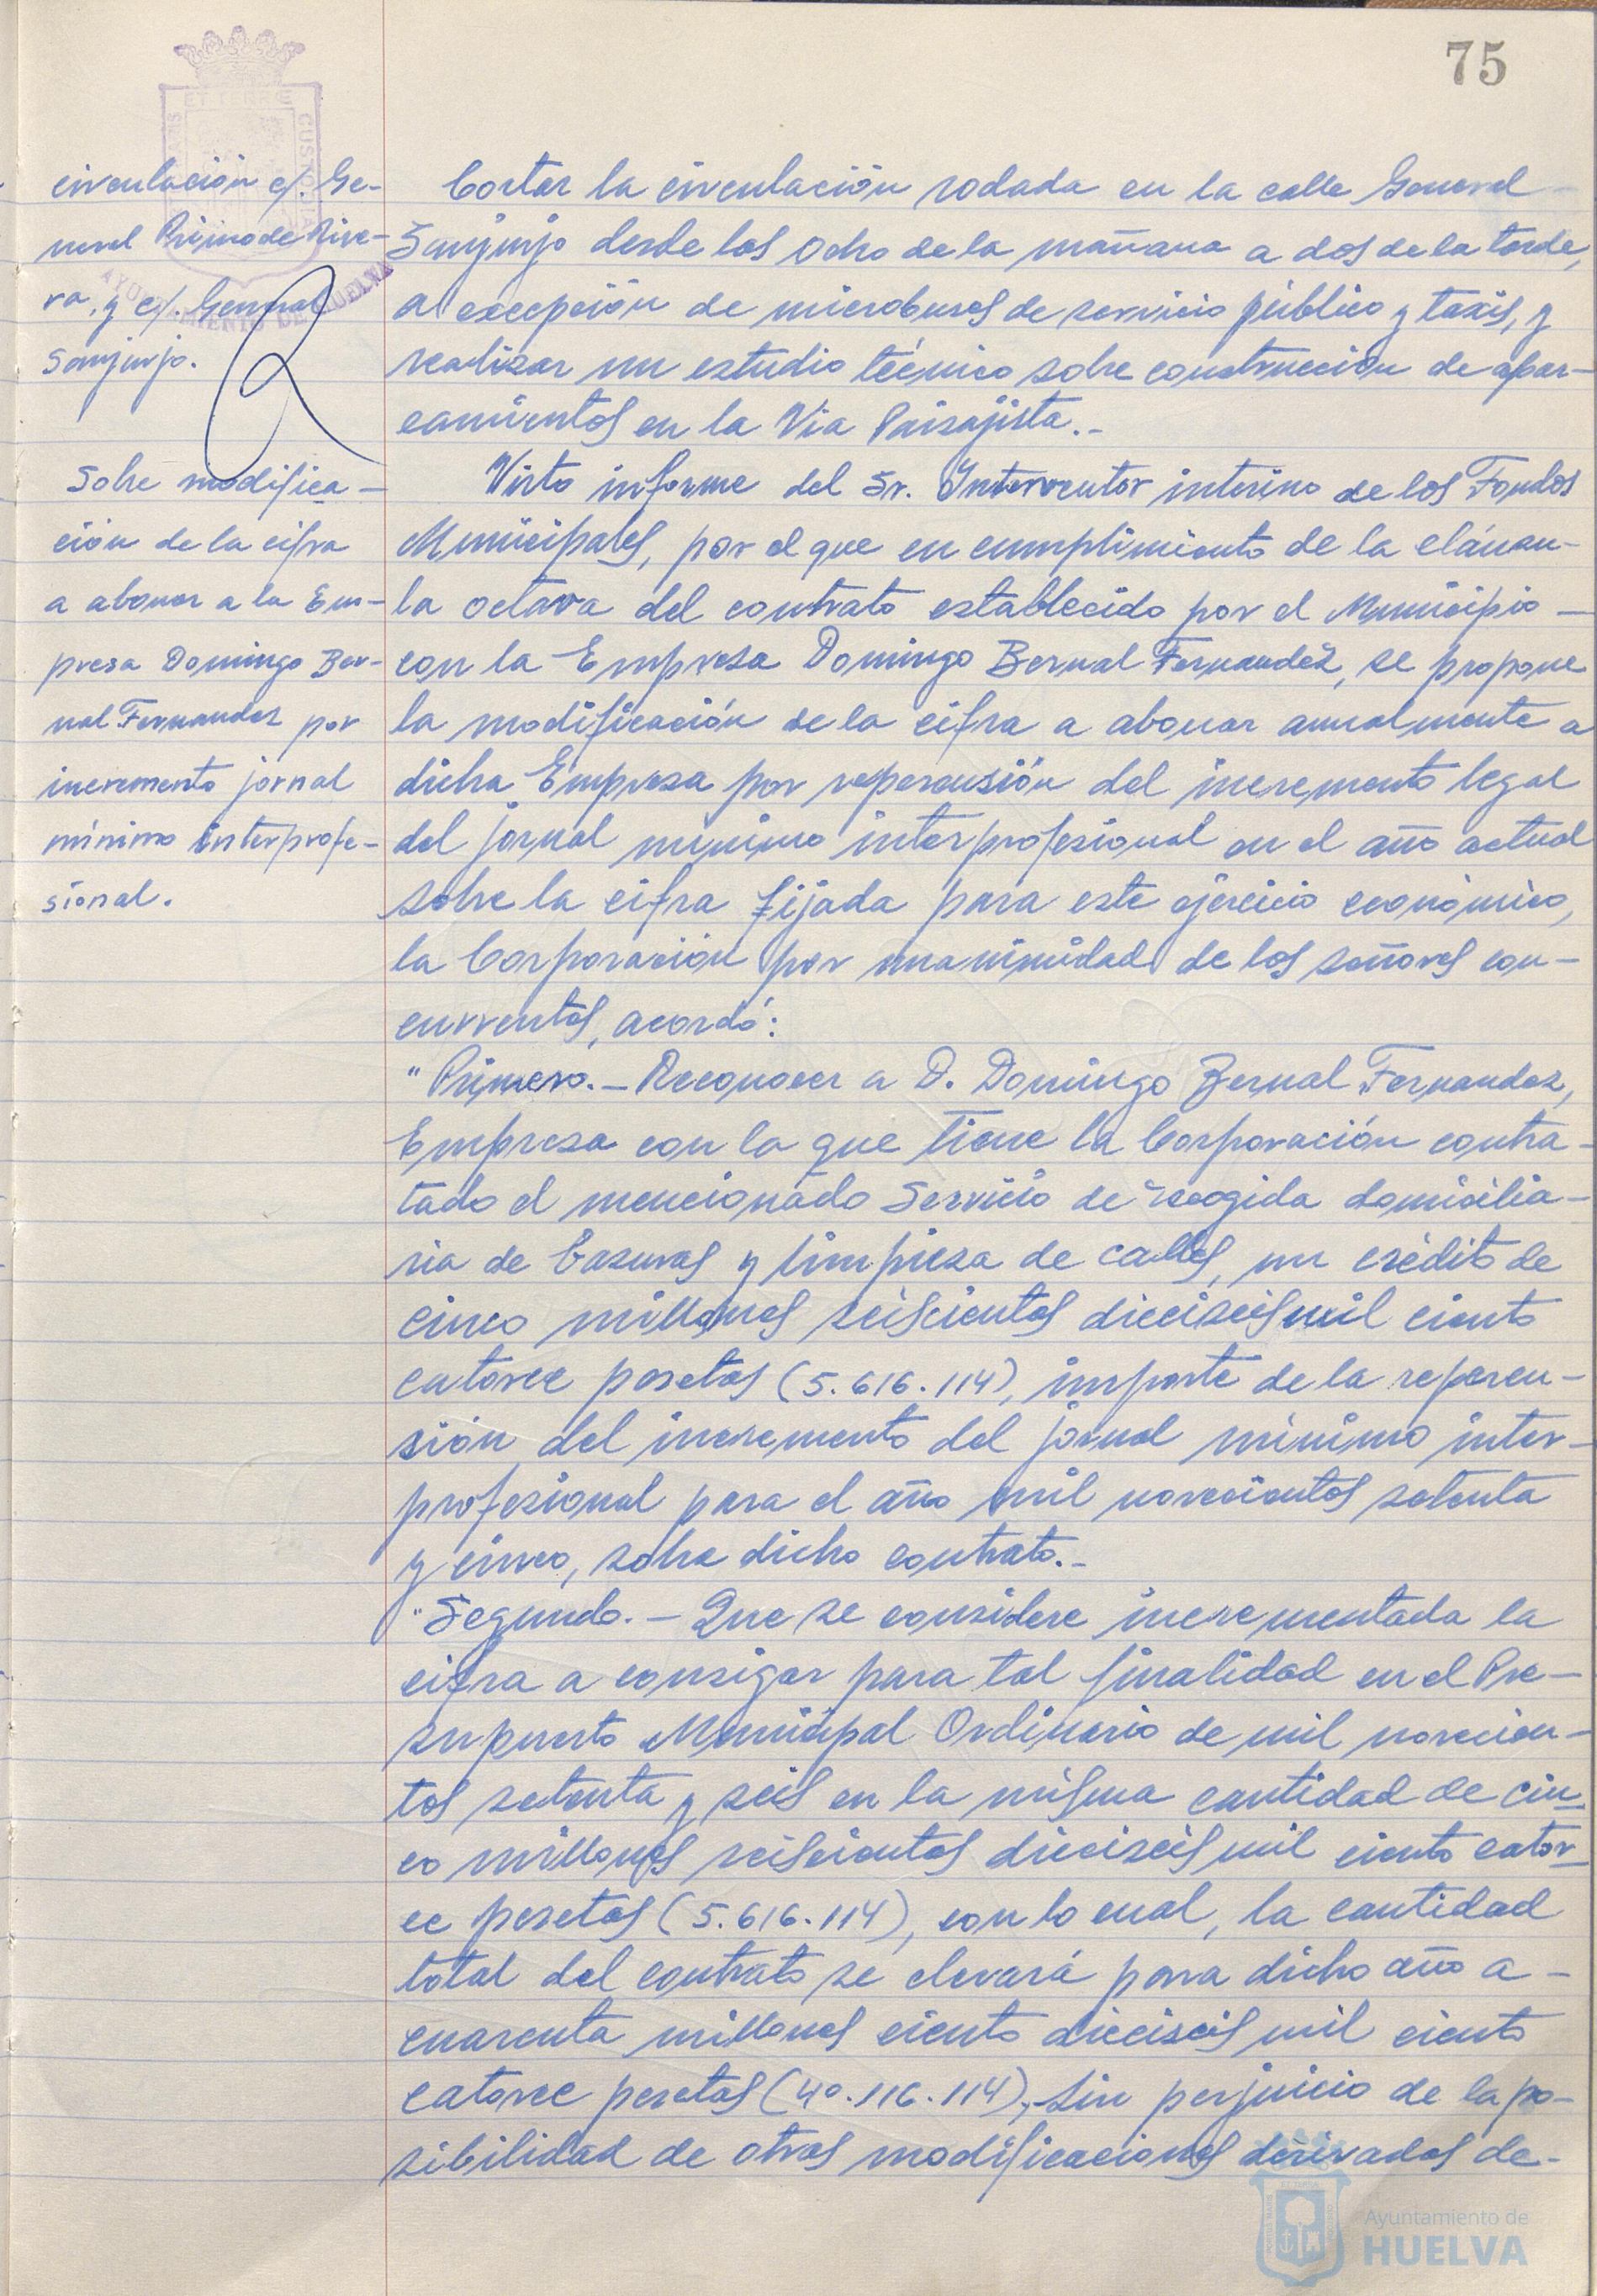 75
circulación c/. Ge-
neral Primo de Rive-
ra, y c/. General
Sanjurjo.
Cortar la circulación rodada en la calle General
Sanjurjo desde las ocho de la mañana a dos de la tarde,
a excepción de microbuses de servicio público y taxis, y
realizar un estudio técnico sobre construcción de apar-
camientos en la Via Paisajista.-
Sobre modifica-
ción de la cifra
a abonar a la Em-
presa Domingo Ber-
nal Fernandez por
incremento jornal
mínimo interprofe-
sional.
Visto informe del Sr. Interventor interino de los Fondos
Municipales, por el que en cumplimiento de la cláusu-
la octava del contrato establecido por el Municipio -
con la Empresa Domingo Bernal Fernandez, se propone
la modificación de la cifra a abonar anualmente a
dicha Empresa por repercusión del incremento legal
del jornal mínimo interprofesional en el año actual
sobre la cifra fijada para este ejercicio económico,
la Corporación por unanimidad de los señores con-
currentes, acordó:
"Primero.- Reconocer a D. Domingo Bernal Fernandez,
Empresa con la que tiene la Corporación contra-
tado el mencionado Servicio de recogida domicilia-
ria de basuras y limpieza de calles, un crédito de
cinco millones seiscientas dieciseis mil ciento
catorce pesetas (5.616.114), importe de la repercu-
sión del incremento del jornal mínimo inter-
profesional para el año mil novecientos setenta
y cinco, sobre dicho contrato.-
"Segundo.- Que se considere incrementada la
cifra a consigar para tal finalidad en el Pre-
supuesto Municipal Ordinario de mil novecien-
tos setenta y seis en la misma cantidad de cin-
co millones seiscientas dieciseis mil ciento cator-
ce pesetas (5.616.114), con lo cual, la cantidad
total del contrato se elevará para dicho año a -
cuarenta millones ciento dieciseis mil ciento
catorce pesetas (40.116.114), sin perjuicio de la po-
sibilidad de otras modificaciones derivadas de-
Ayuntamiento de
HUELVA